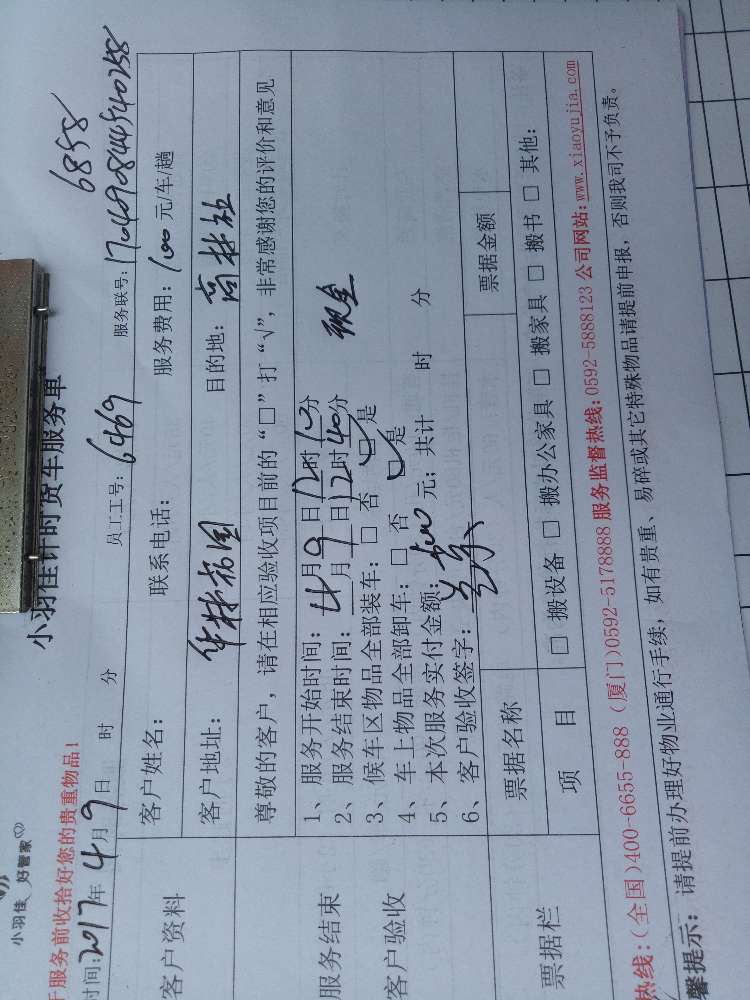 小羽佳 好管家
小羽佳计时货车服务单
服务前收拾好您的贵重物品！
6858
时间:2017年4月9日 时 分 员工工号: 6469 服务联号: 1704090844540258
客户资料
客户姓名: 联系电话: 服务费用: 100元/车/趟
客户地址: 目的地: 高林社
服务结束
客户验收
尊敬的客户，请在相应验收项目前的“□”打“√”，非常感谢您的评价和意见
1、服务开始时间: 4月9日12时10分
2、服务结束时间: 月9日12时40分 现金
3、候车区物品全部装车: □ 否 ☑是
4、车上物品全部卸车: □ 否 ☑是
5、本次服务实付金额: 元; 共计 时 分
6、客户验收签字:
票据栏
票据名称 票据金额
项 目 □ 搬设备 □ 搬办公家具 □ 搬家具 □ 搬书 □ 其他:
热线: (全国)400-6655-888 (厦门)0592-5178888 服务监督热线: 0592-5888123 公司网站: www.xiaoyujia.com
馨提示: 请提前办理好物业通行手续，如有贵重、易碎或其它特殊物品请提前申报，否则我司不予负责。